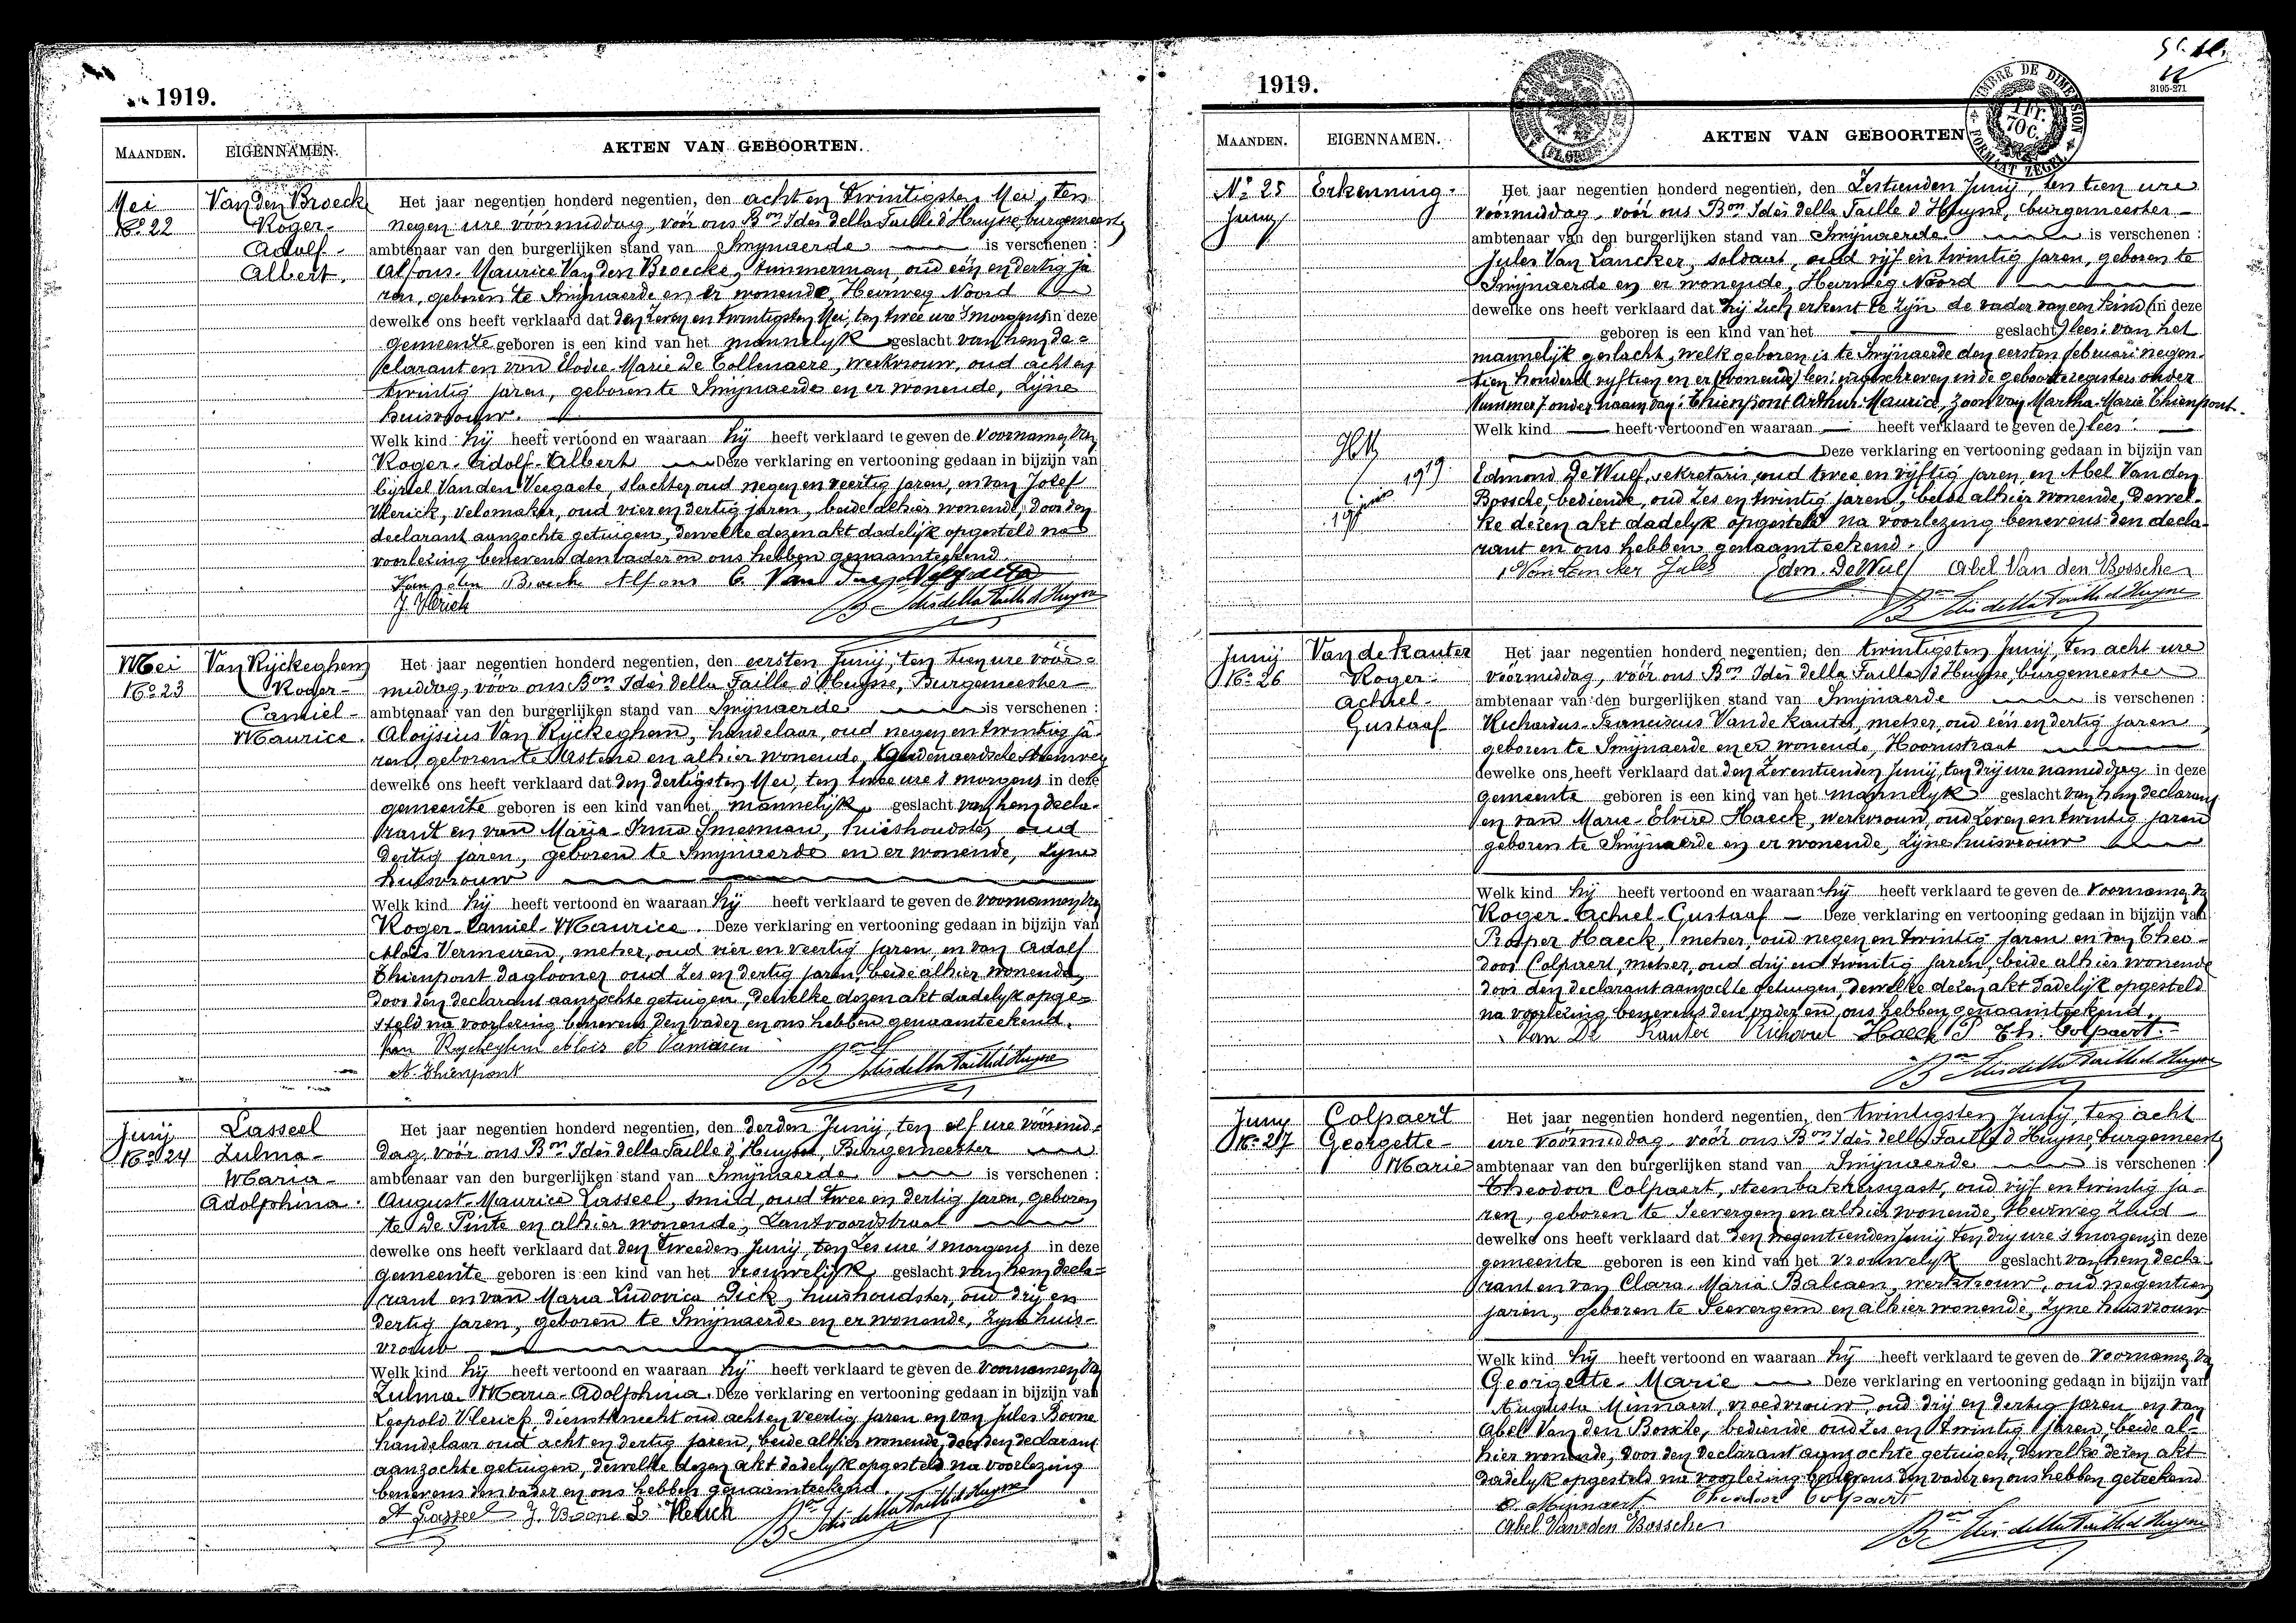 1919.
MAANDEN. EIGENNAMEN. AKTEN VAN GEBOORTEN.
Mei
No 22
Van den Broeck
Roger-
Adolf-
Albert.
Het jaar negentien honderd negentien, den acht en twintigsten Mei, ten
negen ure vóórmiddag, vóór ons Bon Idès della Faille d'Huysse, burgemeester
ambtenaar van den burgerlijken stand van Smijnaerde is verschenen :
Alfons-Maurice Van den Broecke, timmerman, oud één en dertig ja-
ren, geboren te Smijnaerde en er wonende, Heirweg Noord
dewelke ons heeft verklaard dat den zeven en twintigsten Mei, ten twee ure 's morgens in deze
gemeente geboren is een kind van het mannelijk geslacht van hem de-
clarant en van Elodie-Marie De Collenaere, werkvrouw, oud acht en
twintig jaren, geboren te Smijnaerde en er wonende, zijne
huisvrouw.
Welk kind hij heeft vertoond en waaraan hij heeft verklaard te geven de voornamen van
Roger-Adolf-Albert Deze verklaring en vertooning gedaan in bijzijn van
Cyriel Van den Veegaete, slachter, oud negen en veertig jaren, en van Jozef
Vlerick, velomaker, oud vier en dertig jaren, beide alhier wonende, door den
declarant aanzochte getuigen, dewelke dezen akt dadelijk opgesteld na
voorlezing benevens den vader en ons hebben genaamteekend.
Van den Broeck Alfons C. Van den Veegaete
J. Vlerick Bon Idès della Faille d'Huysse
Mei
No 23
Van Rijckeghem
Roger-
Camiel-
Maurice.
Het jaar negentien honderd negentien, den eersten Junij, ten tien ure vóór-
middag, vóór ons Bon Idès della Faille d'Huysse, Burgemeester
ambtenaar van den burgerlijken stand van Smijnaerde is verschenen :
Aloijsius Van Rijckeghem, handelaar, oud negen en twintig ja-
ren, geboren te Astene en alhier wonende, Audenaerdsche Steenweg
dewelke ons heeft verklaard dat den dertigsten Mei, ten twee ure 's morgens in deze
gemeente geboren is een kind van het mannelijk geslacht van hem decla-
rant en van Maria-Irma Smesman, huishoudster, oud
dertig jaren, geboren te Smijnaerde en er wonende, zijne
huisvrouw
Welk kind hij heeft vertoond en waaraan hij heeft verklaard te geven de voornamen van
Roger-Camiel-Maurice. Deze verklaring en vertooning gedaan in bijzijn van
Aloïs Vermeiren, metser, oud vier en veertig jaren, en van Adolf
Thienpont daglooner oud zes en dertig jaren, beide alhier wonende,
door den declarant aanzochte getuigen, dewelke dezen akt dadelijk opge-
steld na voorlezing benevens den vader en ons hebben genaamteekend.
Van Ryckeghem Aloïs A Vermeiren
A. Thienpont Bon Idès della Faille d'Huysse
Junij
No 24
Lasseel
Zulma-
Maria-
Adolphina.
Het jaar negentien honderd negentien, den derden Junij, ten elf ure vóórmid-
dag, vóór ons Bon Idès della Faille d'Huysse, Burgemeester
ambtenaar van den burgerlijken stand van Smijnaerde is verschenen :
August-Maurice Lasseel, smid, oud twee en dertig jaren, geboren
te De Pinte en alhier wonende, Zantvoordstraat
dewelke ons heeft verklaard dat den tweeden Junij, ten zes ure 's morgens in deze
gemeente geboren is een kind van het vrouwelijk geslacht van hem decla-
rant en van Maria Ludovica Dick, huishoudster, oud drij en
dertig jaren, geboren te Smijnaerde en er wonende, zijne huis-
vrouw
Welk kind hij heeft vertoond en waaraan hij heeft verklaard te geven de voornamen van
Zulma-Maria-Adolphina. Deze verklaring en vertooning gedaan in bijzijn van
Leopold Vlerick, dienstknecht oud acht en veertig jaren en van Jules Boone
handelaar oud acht en dertig jaren, beide alhier wonende, door den declarant
aanzochte getuigen, dewelke dezen akt dadelijk opgesteld na voorlezing
benevens den vader en ons hebben genaamteekend.
A Lasseel J. Boone L. Vlerick Bon Idès della Faille d'Huysse
1919.
3195-271
TIMBRE DE DIMENSION
1 Fr. 70 C.
FORMAAT ZEGEL
MAANDEN. EIGENNAMEN. AKTEN VAN GEBOORTEN
No 25
Junij
Erkenning.
19 junij 1919
Het jaar negentien honderd negentien, den Zestienden Junij, ten tien ure
vóórmiddag, vóór ons Bon Idès della Faille d'Huysse, burgemeester
ambtenaar van den burgerlijken stand van Smijnaerde is verschenen :
Jules Van Lancker, soldaat, oud vijf en twintig jaren, geboren te
Smijnaerde en er wonende, Heirweg Noord
dewelke ons heeft verklaard dat hij zich erkent te zijn de vader van een kind (in deze
geboren is een kind van het geslacht) lees: van het
mannelijk geslacht, welk geboren is te Smijnaerde den eersten februari negen-
tien honderd vijftien en er (wonende) lees: ingeschreven in de geboorteregisters onder
Nummer 7 onder naam van: Thienpont Arthur-Maurice, zoon van Martha-Marie Thienpont.
Welk kind heeft vertoond en waaraan heeft verklaard te geven de) lees:
Deze verklaring en vertooning gedaan in bijzijn van
Edmond De Wulf, sekretaris, oud twee en vijftig jaren, en Abel Van den
Bossche, bediende, oud zes en twintig jaren, beide alhier wonende, dewel-
ke dezen akt dadelijk opgesteld na voorlezing benevens den decla-
rant en ons hebben genaamteekend.
Van Lancker Jules Edm. De Wulf Abel Van den Bossche
Bon Idès della Faille d'Huysse
Junij
No 26
Van de Kauter
Roger-
Achiel-
Gustaaf
Het jaar negentien honderd negentien, den twintigsten Junij, ten acht ure
vóórmiddag, vóór ons Bon Idès della Faille d'Huysse, burgemeester
ambtenaar van den burgerlijken stand van Smijnaerde is verschenen :
Richardus-Franciscus Van de Kauter, metser, oud één en dertig jaren,
geboren te Smijnaerde en er wonende, Hoornstraat
dewelke ons heeft verklaard dat den zeventienden Junij, ten drij ure namiddag in deze
gemeente geboren is een kind van het mannelijk geslacht van hem declarant
en van Marie-Elvire Haeck, werkvrouw, oud zeven en twintig jaren
geboren te Smijnaerde en er wonende, zijne huisvrouw
Welk kind hij heeft vertoond en waaraan hij heeft verklaard te geven de voornamen van
Roger-Achiel-Gustaaf Deze verklaring en vertooning gedaan in bijzijn van
Prosper Haeck, metser, oud negen en twintig jaren en van Theo-
door Colpaert, metser, oud drij en twintig jaren, beide alhier wonende
door den declarant aanzochte getuigen, dewelke dezen akt dadelijk opgesteld
na voorlezing benevens den vader en ons hebben genaamteekend.
Van De Kauter Richard Haeck P Th. Colpaert.
Bon Idès della Faille d'Huysse
Junij
No 27
Colpaert
Georgette-
Marie
Het jaar negentien honderd negentien, den twintigsten Junij, ten acht
ure vóórmiddag vóór ons Bon Idès della Faille d'Huysse, burgemeester
ambtenaar van den burgerlijken stand van Smijnaerde is verschenen :
Theodoor Colpaert, steenbakkersgast, oud vijf en twintig ja-
ren, geboren te Seevergem en alhier wonende, Heirweg Zuid
dewelke ons heeft verklaard dat den negentienden Junij ten drij ure 's morgens in deze
gemeente geboren is een kind van het vrouwelijk geslacht van hem decla-
rant en van Clara-Maria Balcaen, werkvrouw, oud negentien
jaren, geboren te Seevergem en alhier wonende, zijne huisvrouw
Welk kind hij heeft vertoond en waaraan hij heeft verklaard te geven de voornamen van
Georgette-Marie Deze verklaring en vertooning gedaan in bijzijn van
Augusta Minnaert, vroedvrouw, oud drij en dertig jaren en van
Abel Van den Bossche, bediende oud zes en twintig jaren, beide al-
hier wonende, door den declarant aanzochte getuigen, dewelke dezen akt
dadelijk opgesteld na voorlezing benevens den vader en ons hebben geteekend
A. Minnaert Theodoor Colpaert
Abel Van den Bossche Bon Idès della Faille d'Huysse